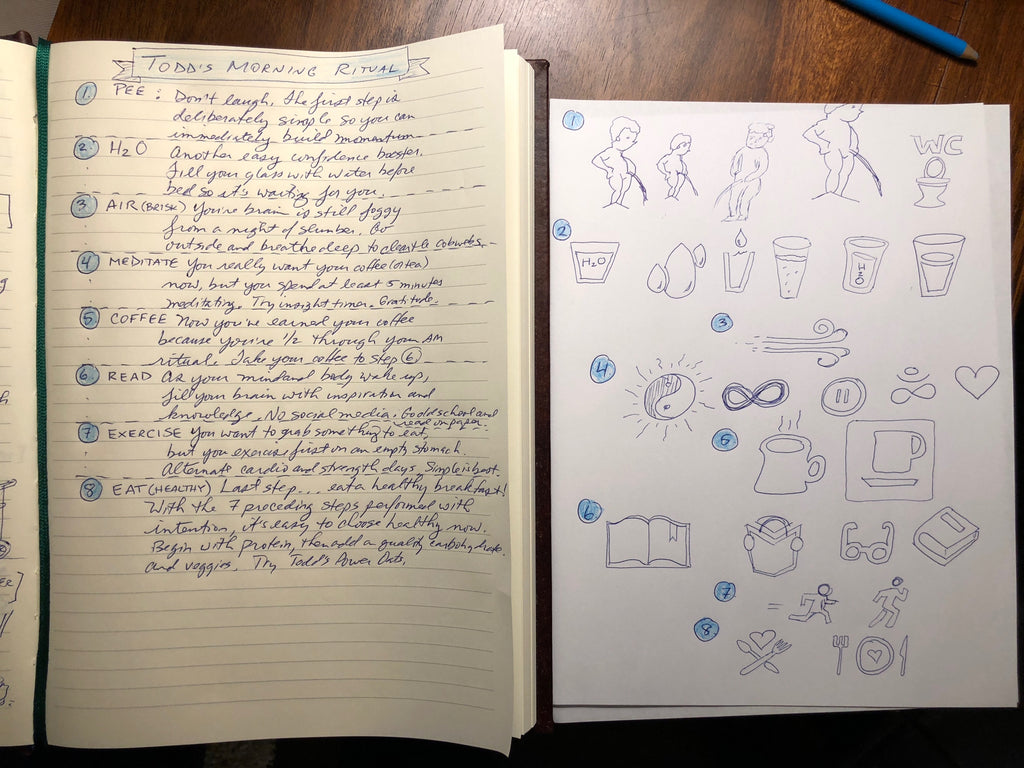 TODD'S MORNING RITUAL
1. PEE : Don't laugh. The first step is
deliberately simple so you can
immediately build momentum
2. H2O Another easy confidence booster.
Fill your glass with water before
bed so it's waiting for you.
3. AIR (BRISK) You're brain is still foggy
from a night of slumber. Go
outside and breathe deep to clear the cobwebs.
4. MEDITATE You really want your coffee (or tea)
now, but you spend at least 5 minutes
meditating. Try insight timer. Gratitude.
5. COFFEE Now you've earned your coffee
because you're 1/2 through your AM
ritual. Take your coffee to step 6
6. READ As your mind and body wake up,
fill your brain with inspiration and
knowledge. No social media. Go old school and
read on paper.
7. EXERCISE You want to grab something to eat,
but you exercise first on an empty stomach.
Alternate cardio and strength days. Simple is best.
8 EAT (HEALTHY) Last step... eat a healthy breakfast!
With the 7 preceding steps performed with
intention, it's easy to choose healthy now.
Begin with protein, then add a quality carbohydrate
and veggies. Try Todd's Power Oats.
1
WC
2
H2O
H2O
3
4
5
6
7
8